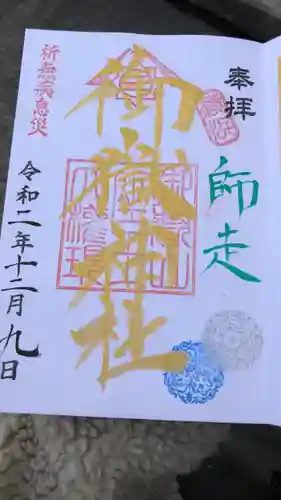 奉拝
師走
御嶽神社
祈無病息災
令和二年十二月九日